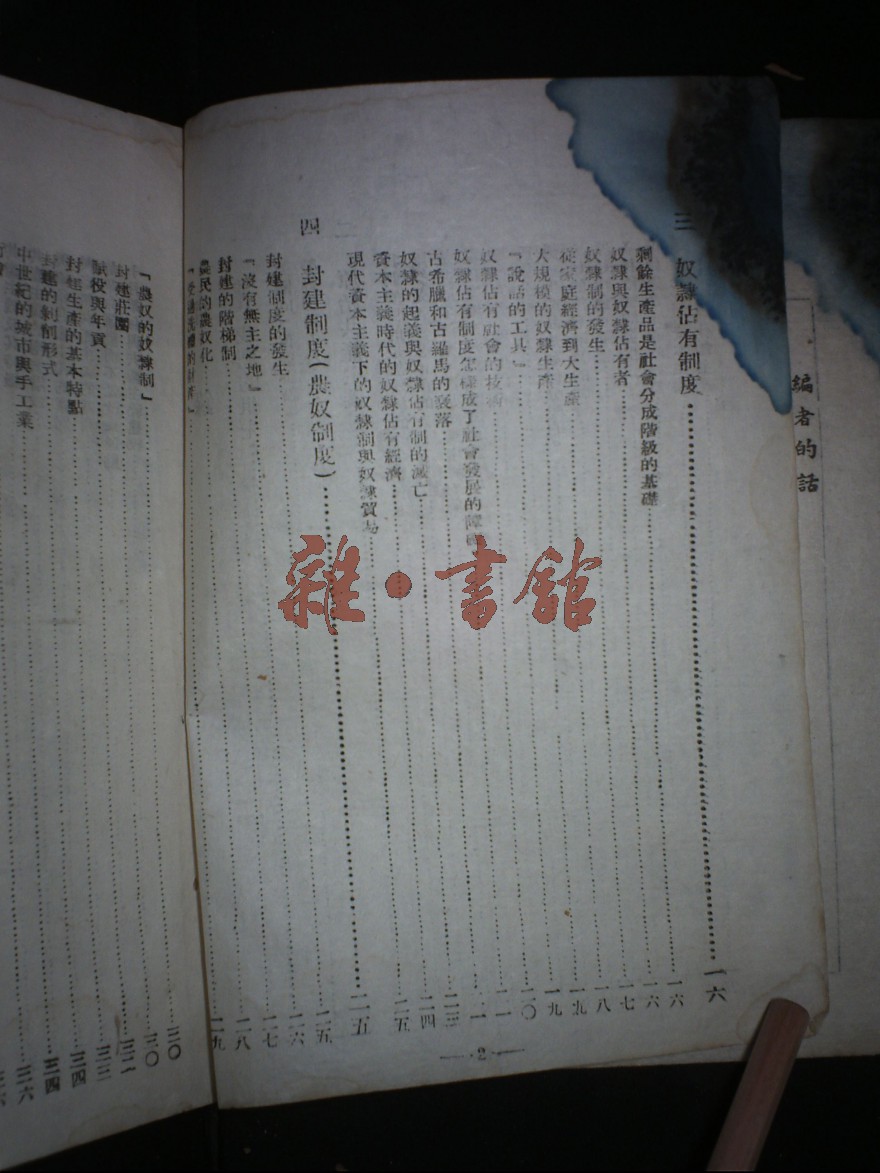 編者的話
三 奴隸佔有制度 一六
剩餘生產品是社會分成階級的基礎 一六
奴隸與奴隸佔有者 一六
奴隸制的發生 一七
從家庭經濟到大生產 一八
大規模的奴隸生產 一九
「說話的工具」 一九
奴隸佔有社會的技術 二〇
奴隸佔有制度怎樣成了社會發展的障 二一
古希臘和古羅馬的衰落
奴隸的起義與奴隸佔有制的滅亡 二三
資本主義時代的奴隸佔有經濟 二四
現代資本主義下的奴隸制與奴隸貿易 二五
四 封建制度(農奴制度) 二五
封建制度的發生 二五
「沒有無主之地」 二六
封建的階梯制 二七
農民的農奴化 二八
「受過洗禮的財產」 二九
「農奴的奴隸制」 三〇
封建莊園 三〇
賦役與年貢
封建生產的基本特點 三三
封建的剝削形式 三四
中世紀的城市與手工業 三四
三六
2
雜·書館